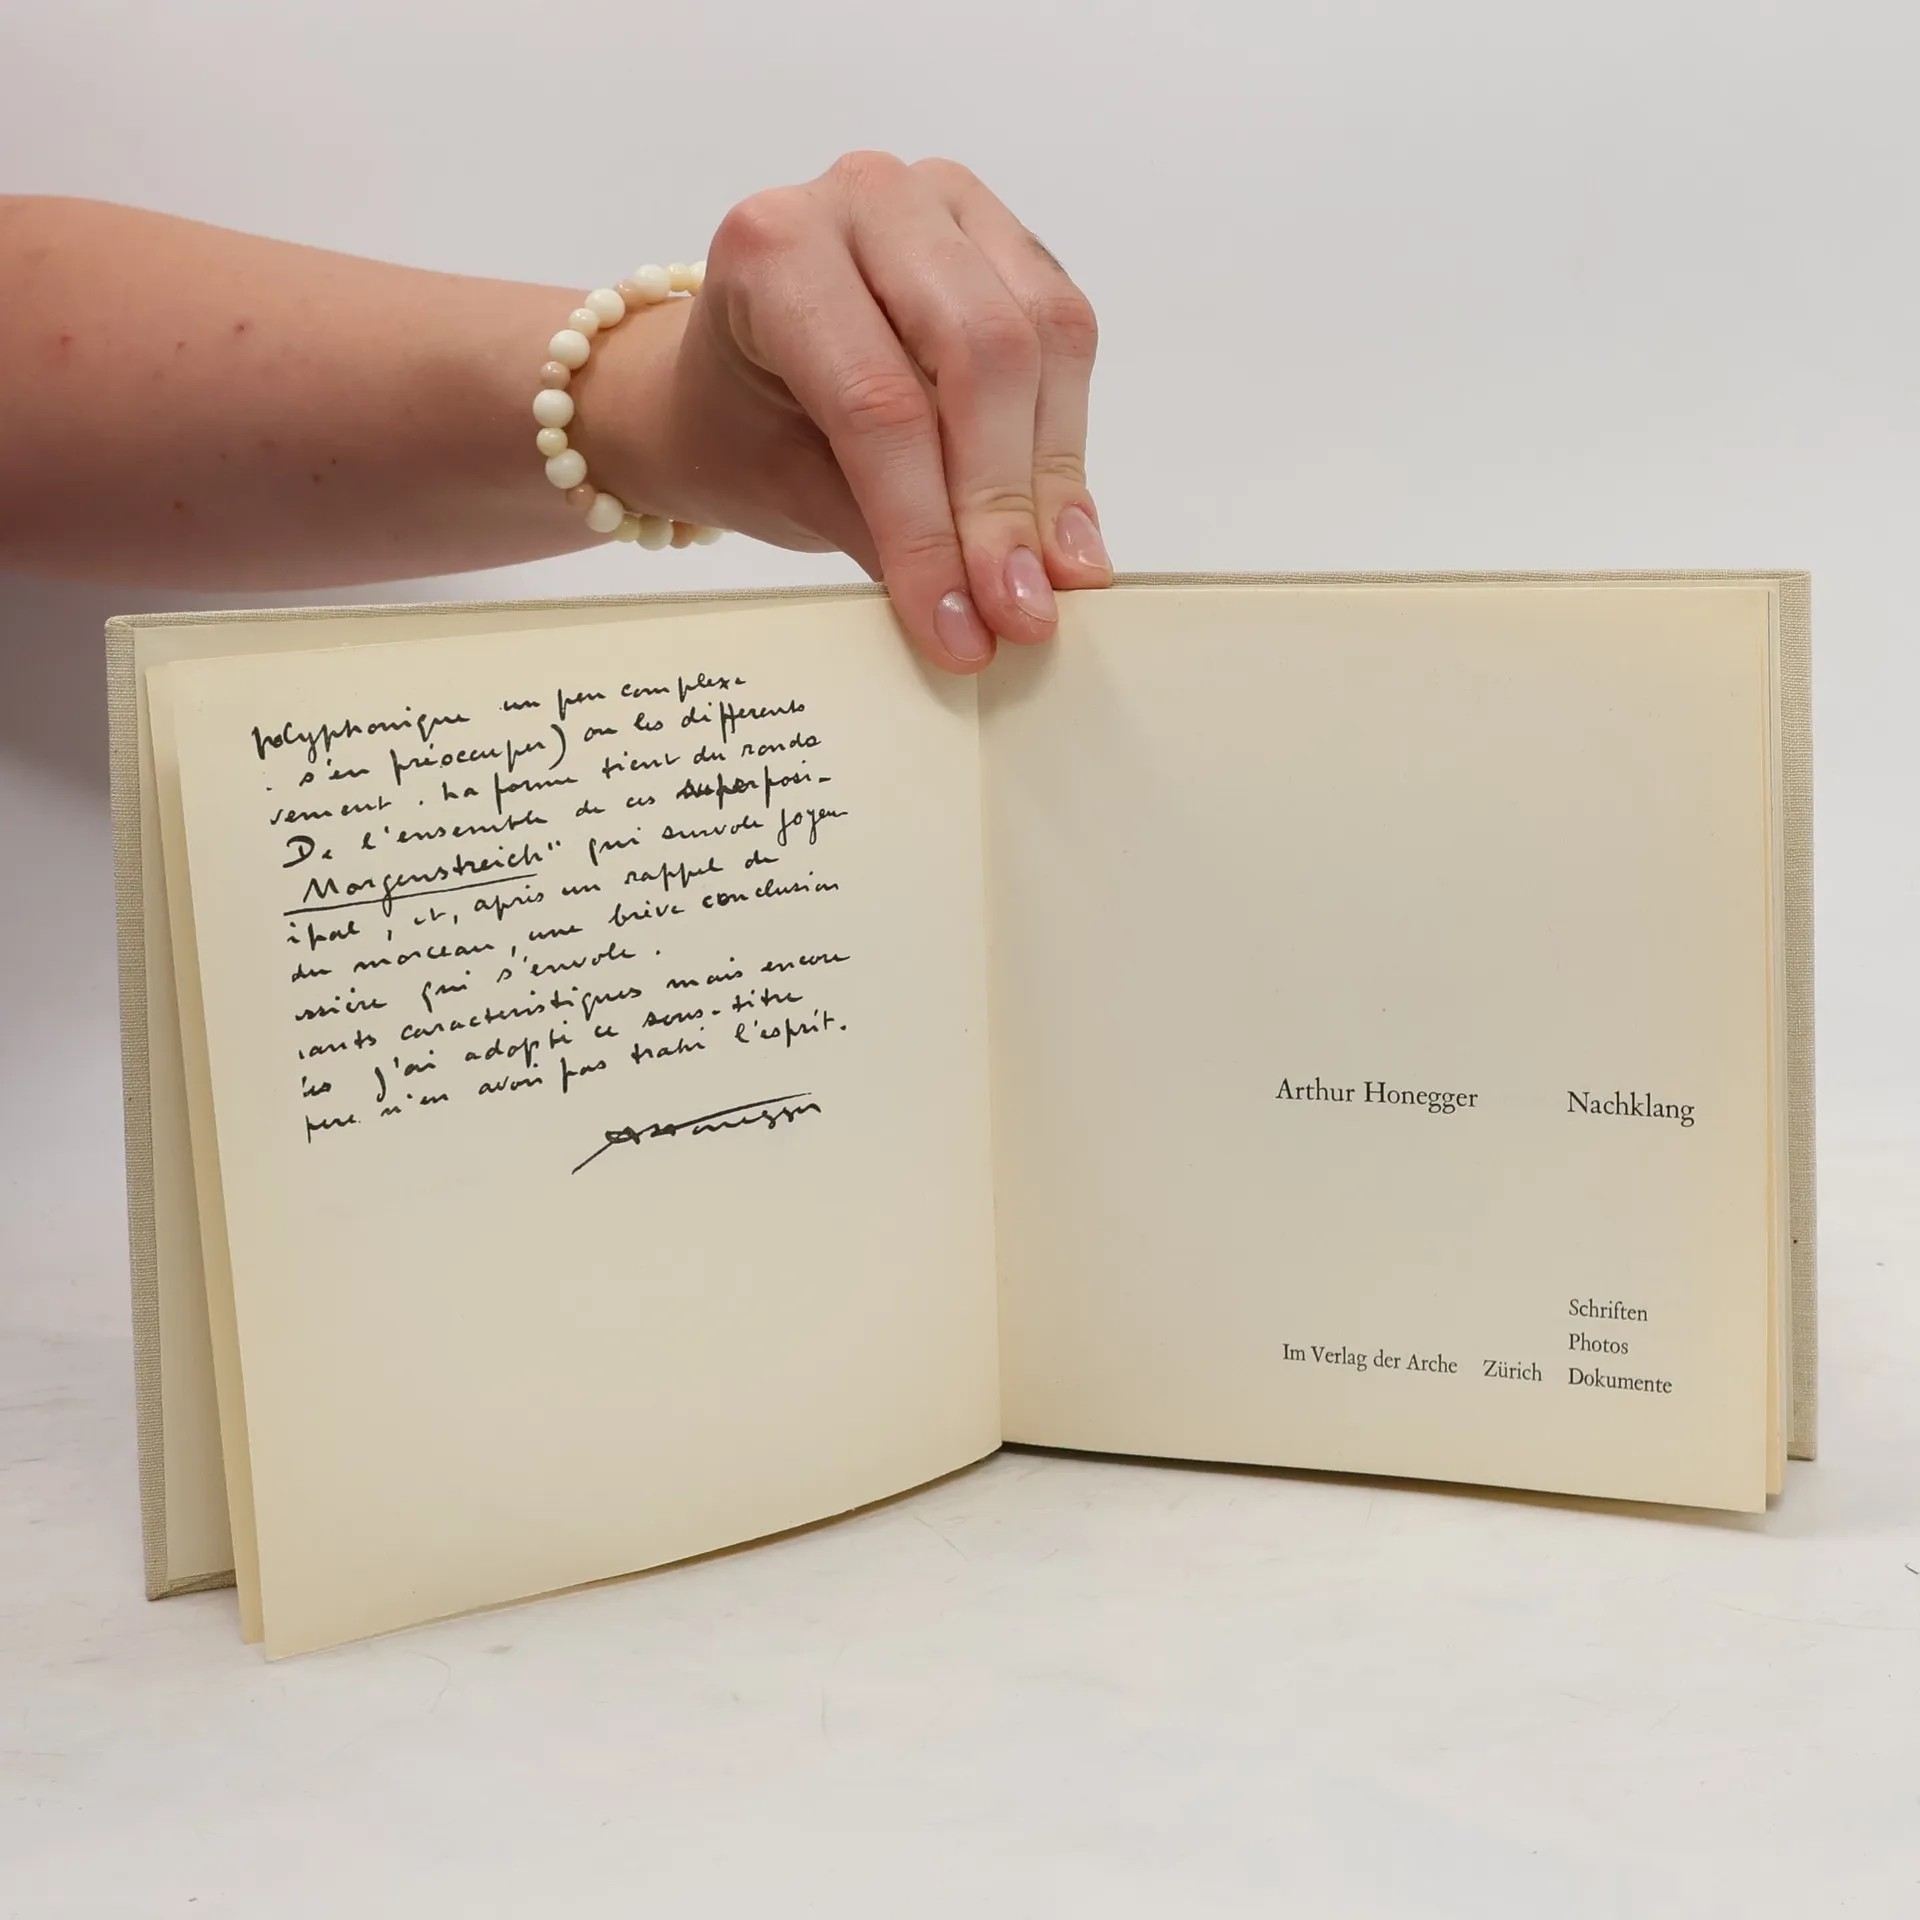 polyphonique un peu complexe
s'en préoccuper) ou les differents
vement. La forme tient du rondo
De l'ensemble de ces superposi-
Morgenstreich" qui survole joyeu
ipal, et, après un rappel de
du morceau, une brève conclusion
ssière qui s'envole.
iants caracteristiques mais encore
es j'ai adopté ce sous-titre
pere n'en avoir pas trahi l'esprit.
AHonegger
Arthur Honegger Nachklang
Schriften
Photos
Im Verlag der Arche Zürich Dokumente